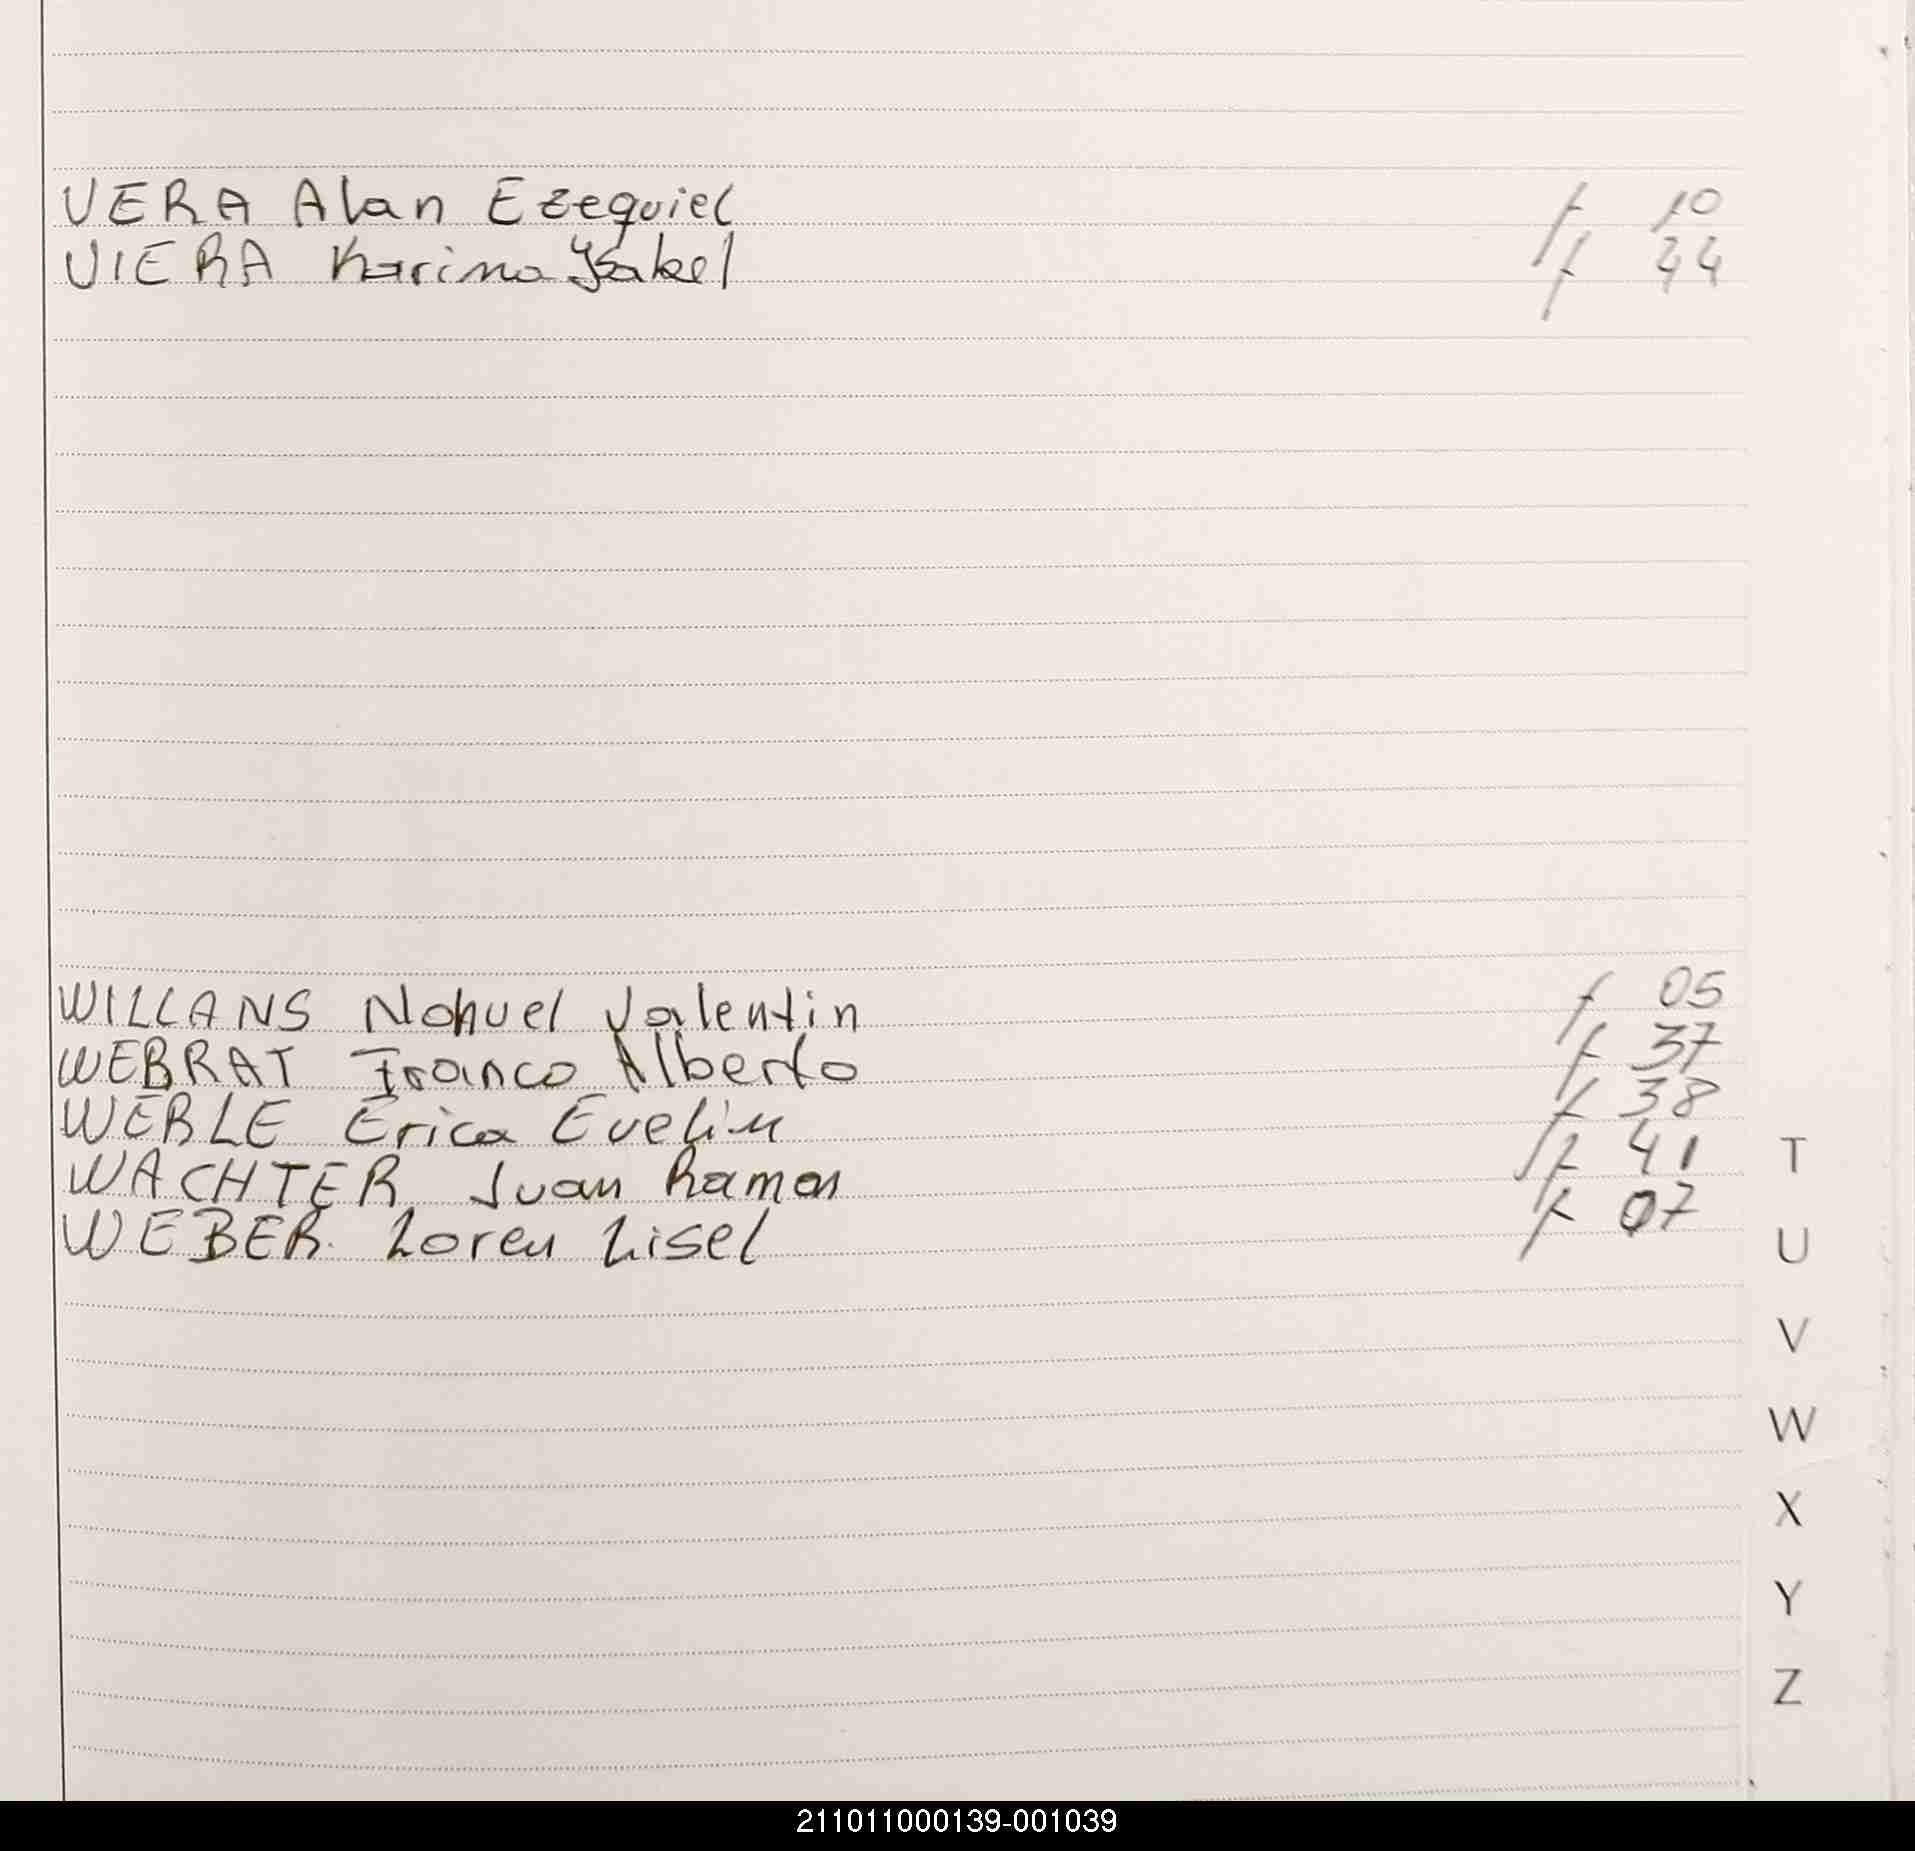 VERA Alan Ezequiel f 10
VIERA Karina Ysabel f 44
WILLANS Nahuel Valentin f 05
WEBRAT Franco Alberto f 37
WERLE Erica Evelin f 38
WACHTER Juan Ramon f 41
WEBER Loren Lisel f 07
T
U
V
W
X
Y
Z
211011000139-001039